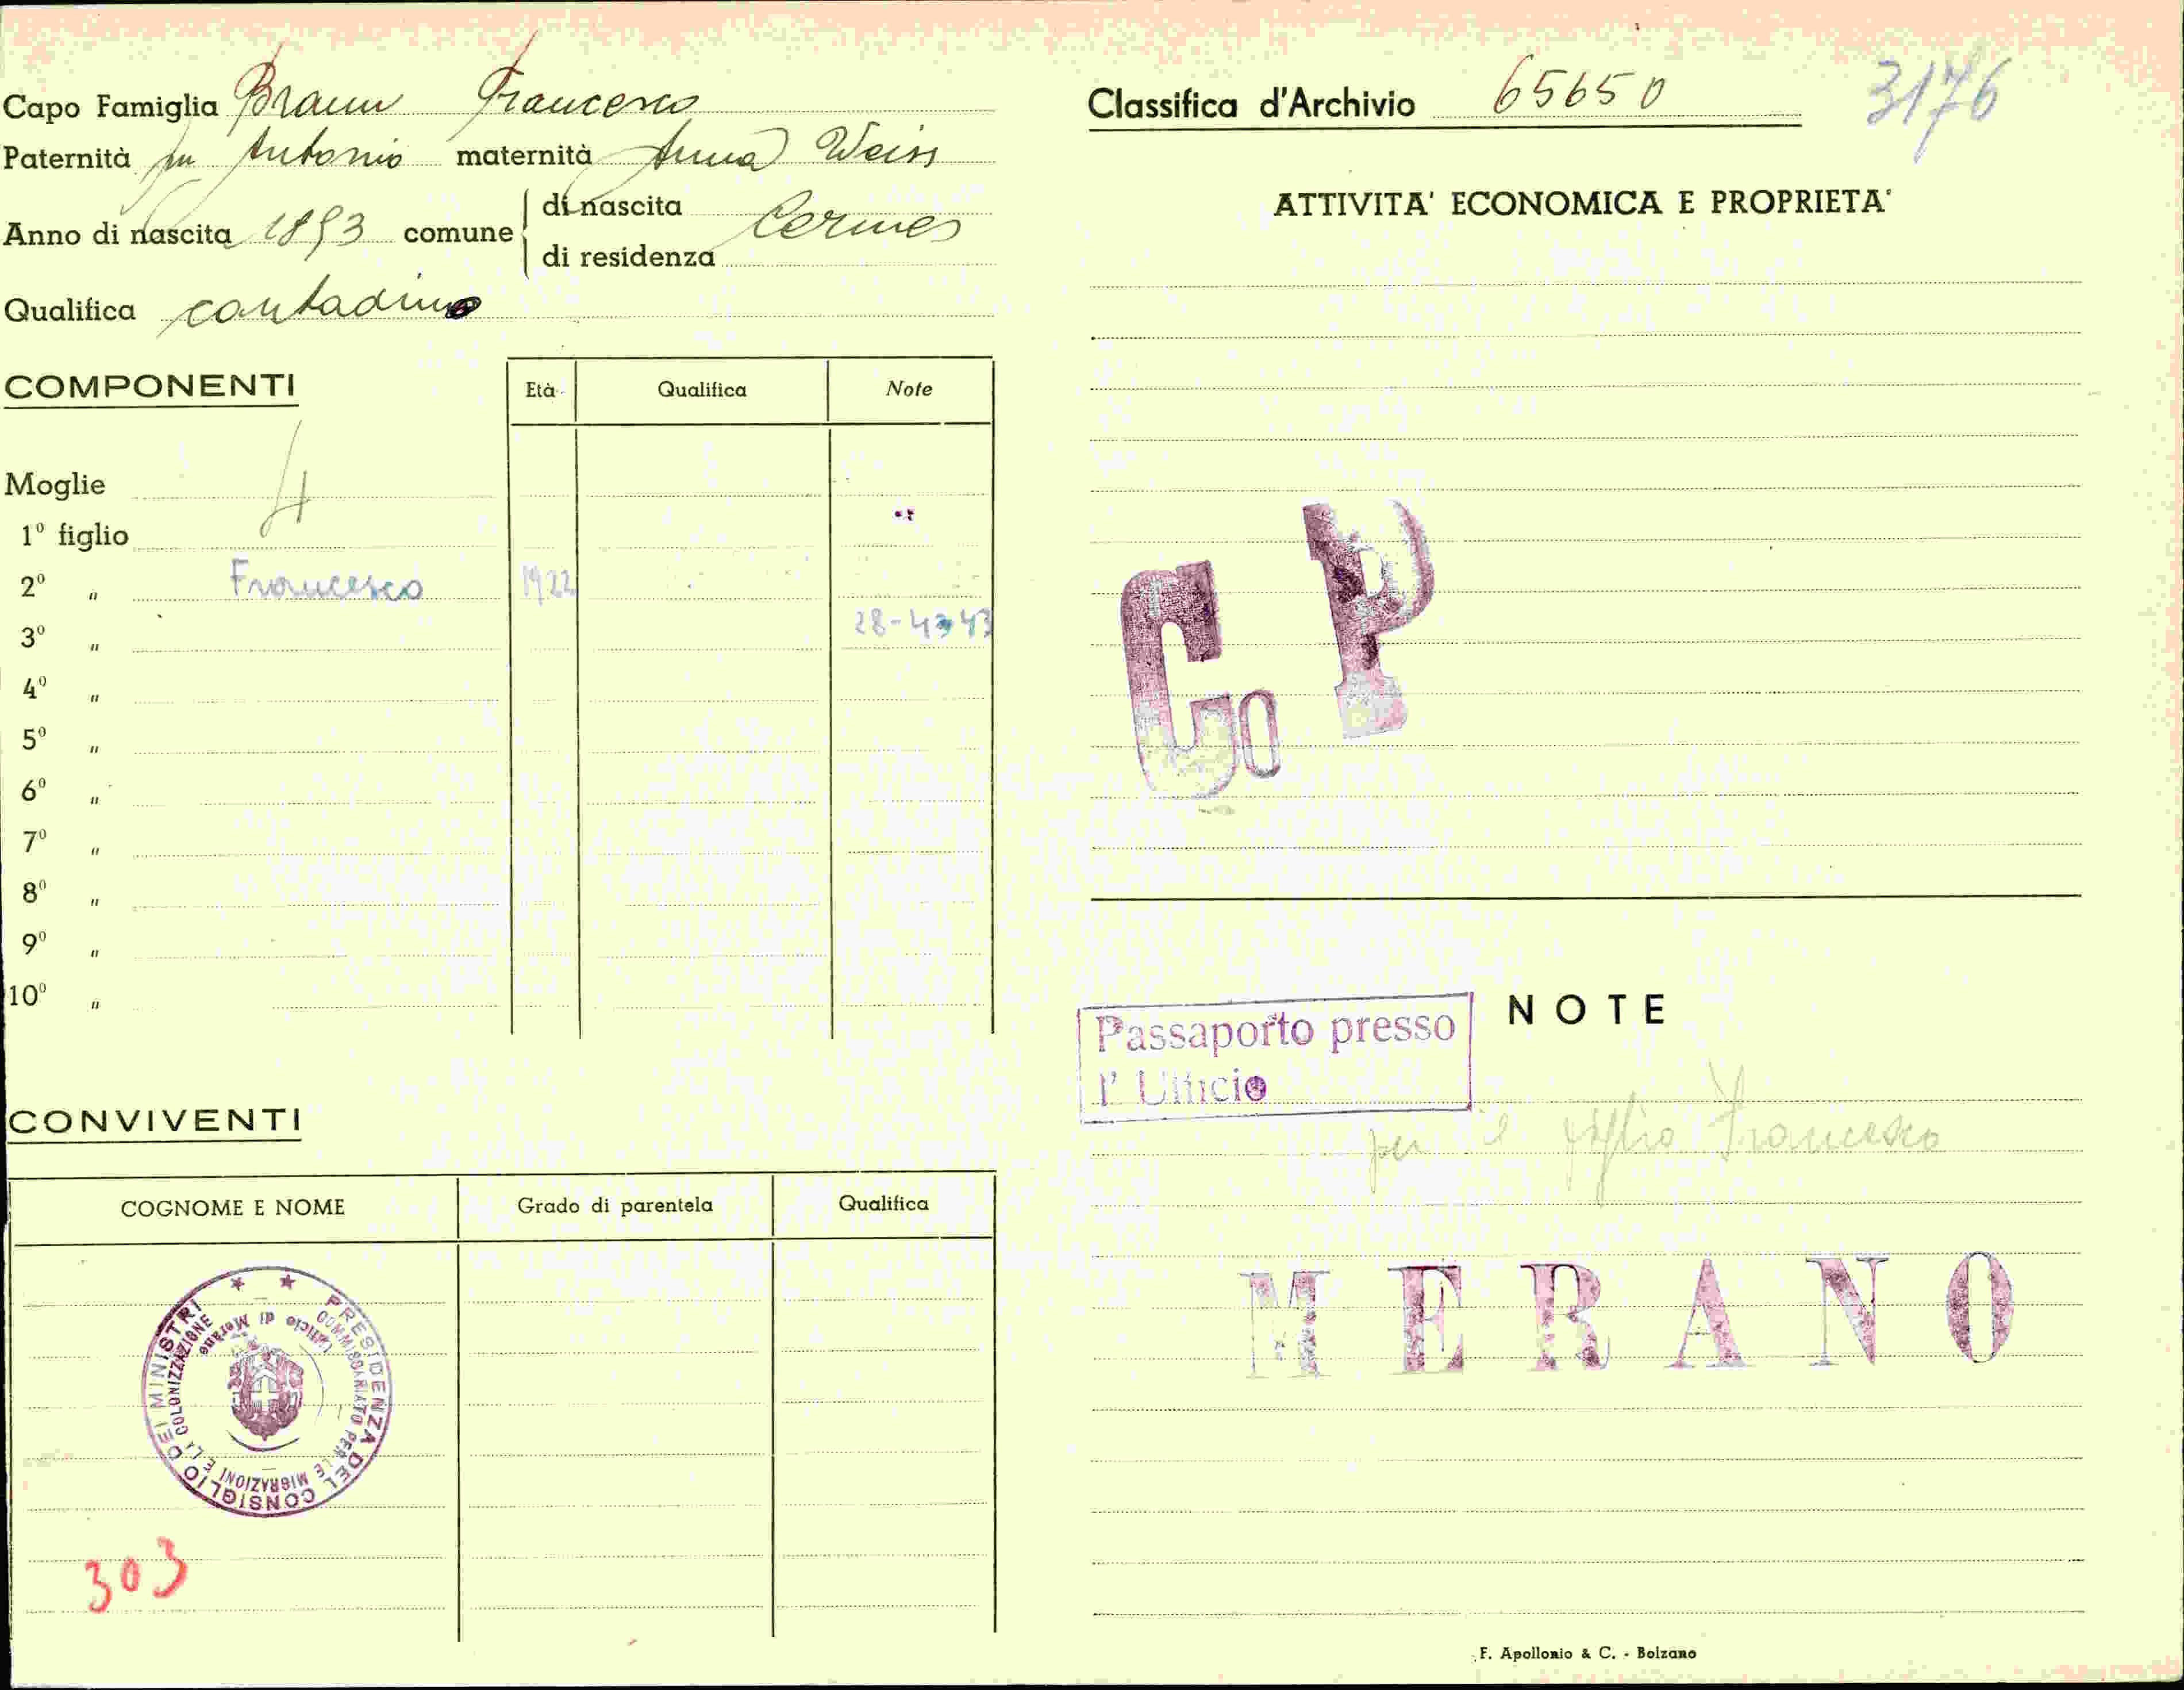 Capo Famiglia Braun Francesco
Paternità fu Antonio maternità Anna Weiss
Anno di nascita 1893 comune di nascita Cermes
di residenza
Qualifica contadino
COMPONENTI Età Qualifica Note
4
Moglie
1º figlio
2º " Francesco 1922
3º " 28-4-43
4º "
5º "
6º "
7º "
8º "
9º "
10º "
CONVIVENTI
COGNOME E NOME Grado di parentela Qualifica
PRESIDENZA DEL CONSIGLIO DEI MINISTRI
COMMISSARIATO PER LE MIGRAZIONI E LA COLONIZZAZIONE
Ufficio di Merano
303
Classifica d'Archivio 65650 3176
ATTIVITA' ECONOMICA E PROPRIETA'
Go P
NOTE
Passaporto presso
l' Ufficio
per il figlio Francesco
MERANO
F. Apollonio & C. - Bolzano